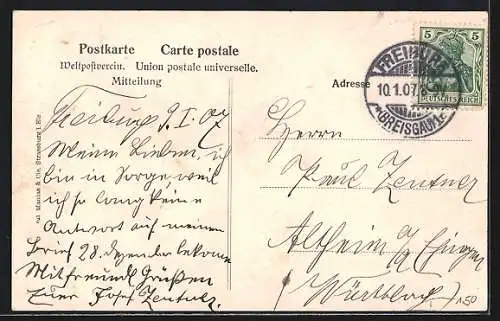 Postkarte Carte postale
Weltpostverein. Union postale universelle.
Mitteilung
Adresse
5 5
DEUTSCHES REICH
FREIBURG
10.1.07.
(BREISGAU)
Freiburg 9. I. 07
Meine Lieben, ich
bin in Sorge, weil
ich so lang keine
Antwort auf meinen
Brief 28. Dezember bekomme
Mit freundl. Grüßen
Euer Josef Zentner
Herrn
Paul Zentner
Altheim a/ Ehingen
Württbbg
& Cie, Strassburg i. Els